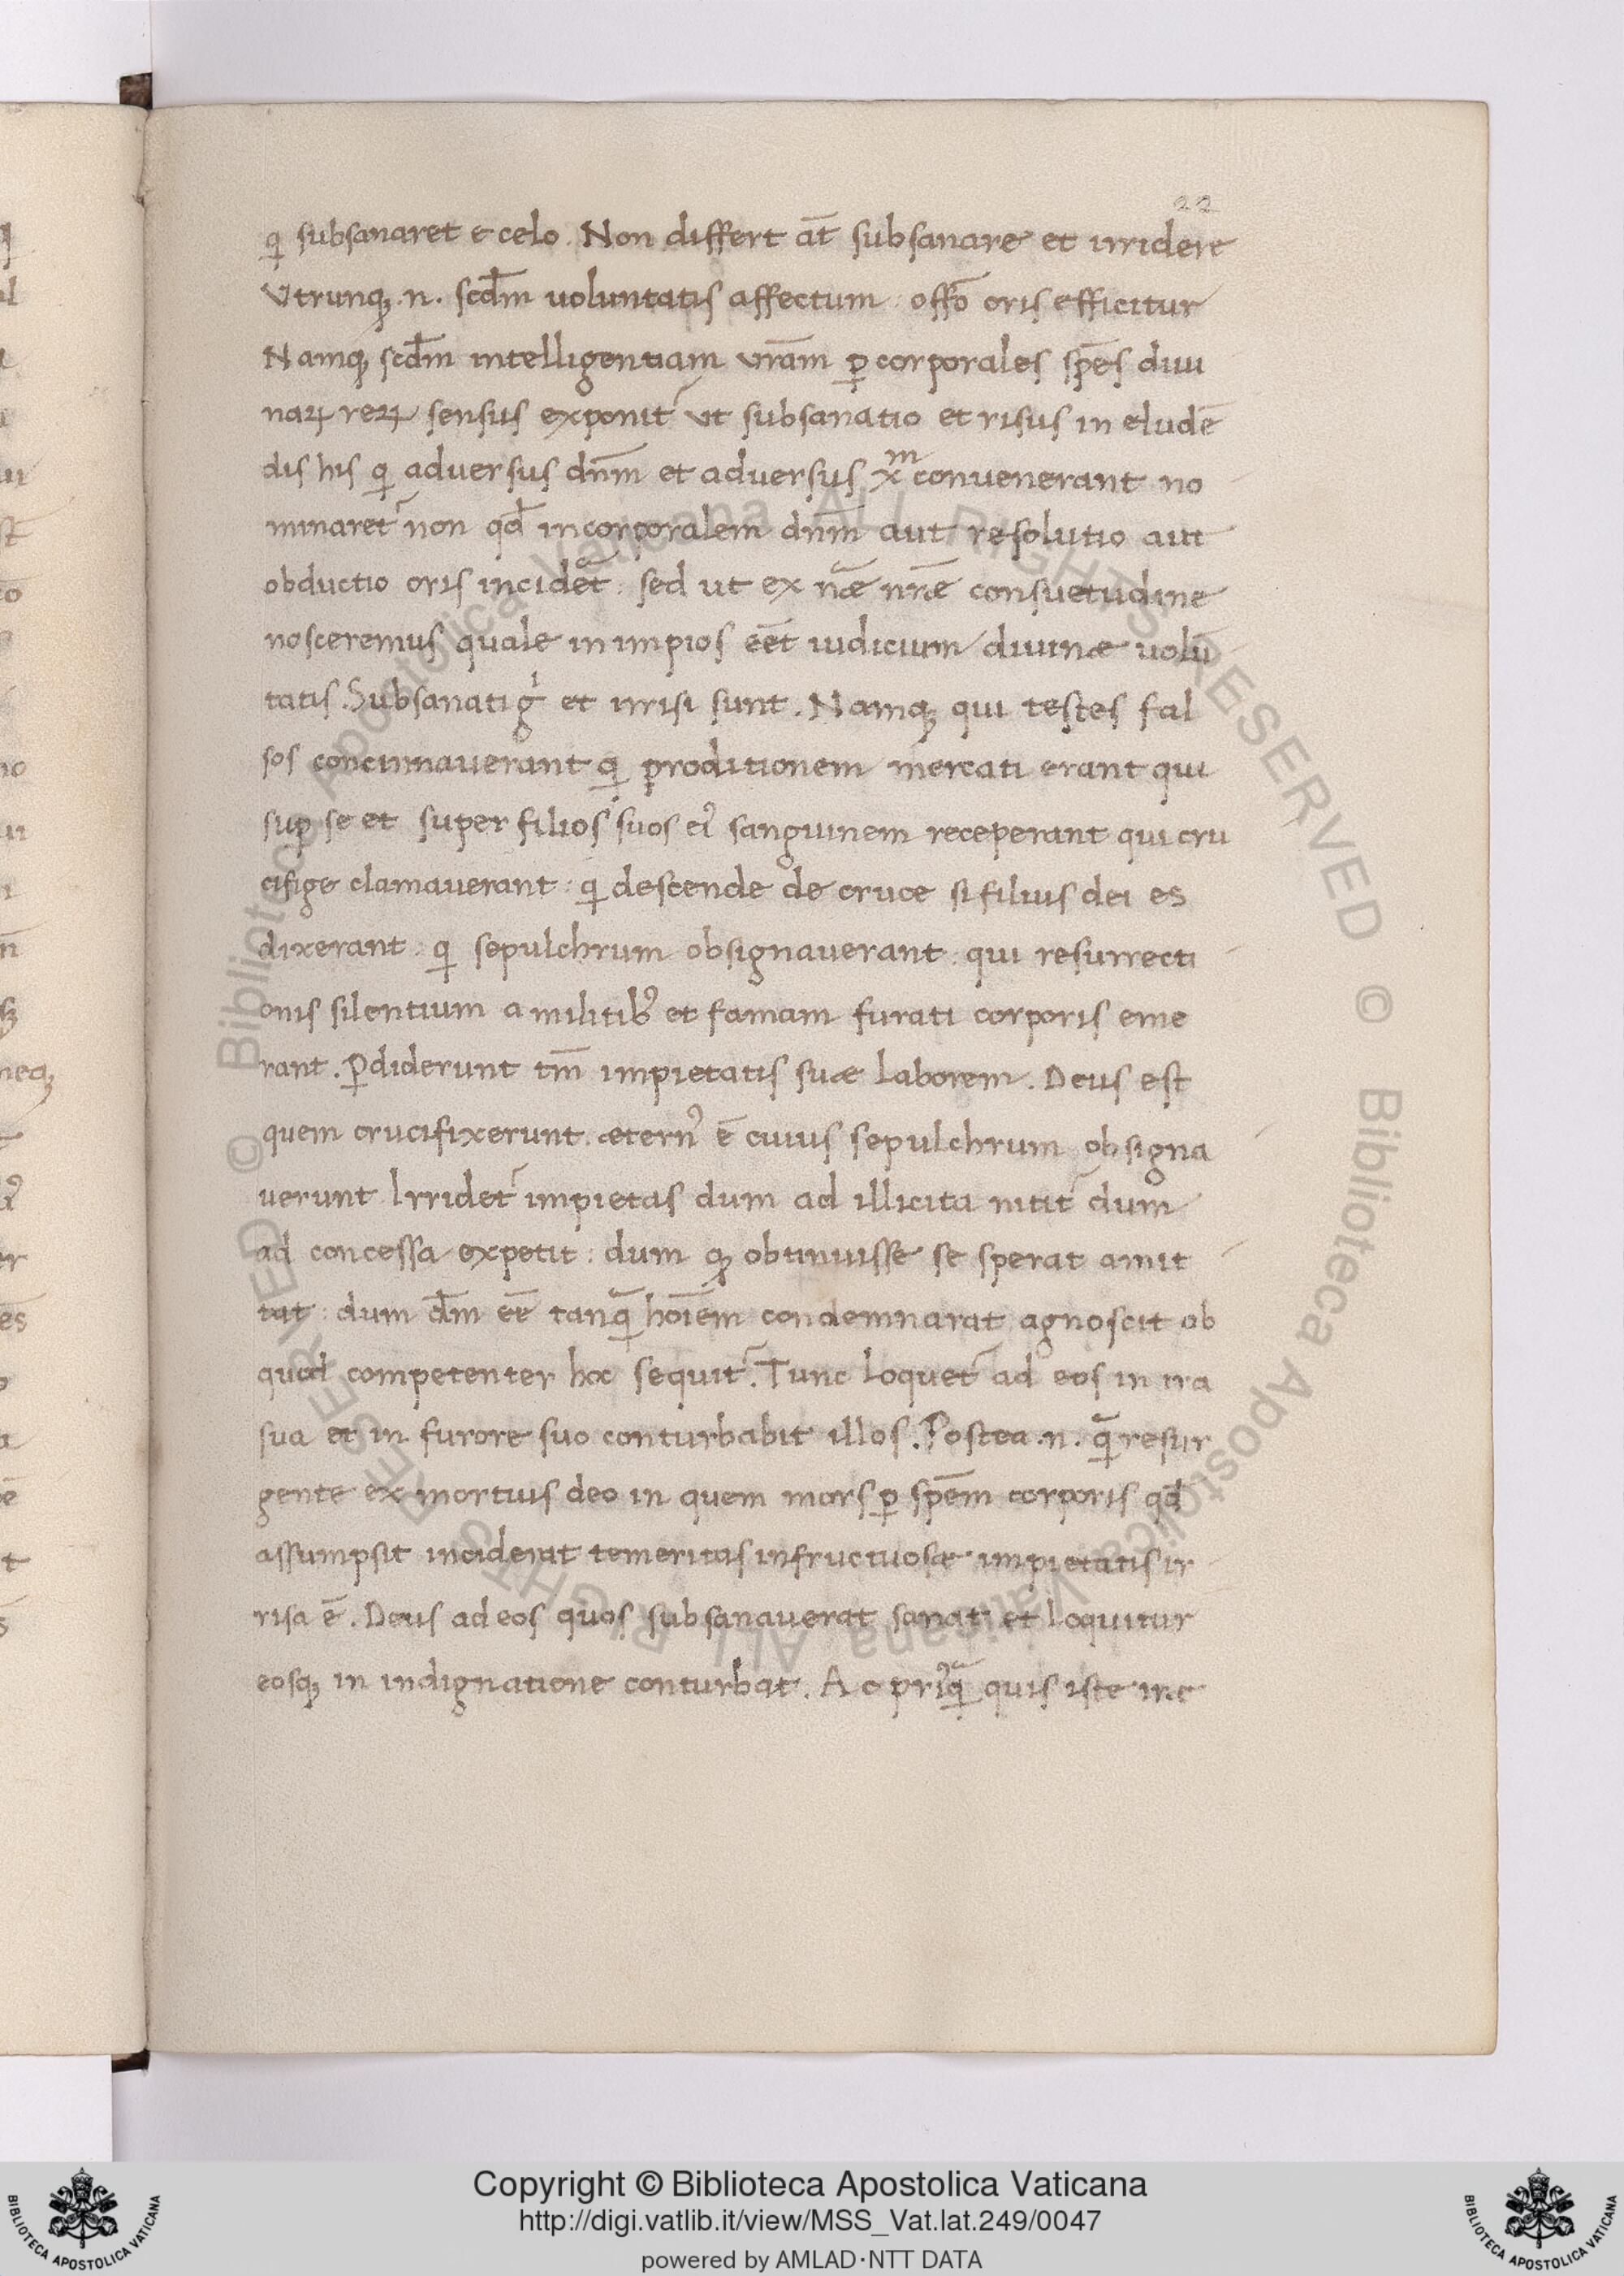 22
qi subsanaret e celo. Non differt at̄ subsanare et irridere
Utrunqꝫ .n. scd̄m uoluntatis affectum: offō oris efficitur
Namqꝫ scd̄m intelligentiam vr̄am ꝑ corporales sp̄es diui
naꝝ reꝝ sensus exponit᷑ ut subsanatio et risus in eludē
dis his qi adversus dn̄m et adversus xᵐ convenerant no
minaret᷑ non qd̄ incorporalem dn̄m aut resolutio aut
obductio oris incidēt: sed ut ex nᵃ̄e nr̄ae consuetudine
nosceremus quale in impios eēt iudicium divinae uolū
tatis. Subsanati gⁱ et irrisi sunt. Namqꝫ qui testes fal
sos concinnauerant qi proditionem mercati erant qui
suꝑ se et super filios suos ei᾽ sanguinem receperant qui cru
cifige clamaverant: qi descende de cruce si filius dei es
dixerant: qi sepulchrum obsignaverant: qui resurrecti
onis silentium a militib᾽ et famam furati corporis eme
rant. ꝑdiderunt tm̄ impietatis suae laborem. Deus est
quem crucifixerunt. aetern᾽ ē cuius sepulchrum obsigna
uerunt Irridet᷑ impietas dum ad illicita nitit᷑ dum
ad concessa expetit: dum qꝫ obtinuisse se sperat amit
tat: dum d̄m eē tanqᵃ̄ hoīem condemnarat agnoscit ob
quod competenter hoc sequit᷑. Tunc loquet᷑ ad eos in ira
sua et in furore suo conturbabit illos. Postea .n. qᵃ̄ resur
gente ex mortuis deo in quem mors ꝑ sp̄em corporis qd̄
assumpsit inciderat temeritas infructuosae impietatis ir
risa ē. Deus ad eos quos subsanauerat sanat et loquitur
eosqꝫ in indignatione conturbat. Ac pri᾽qᵃ̄ quis iste irae
Copyright © Biblioteca Apostolica Vaticana
http://digi.vatlib.it/view/MSS_Vat.lat.249/0047
powered by AMLAD·NTT DATA